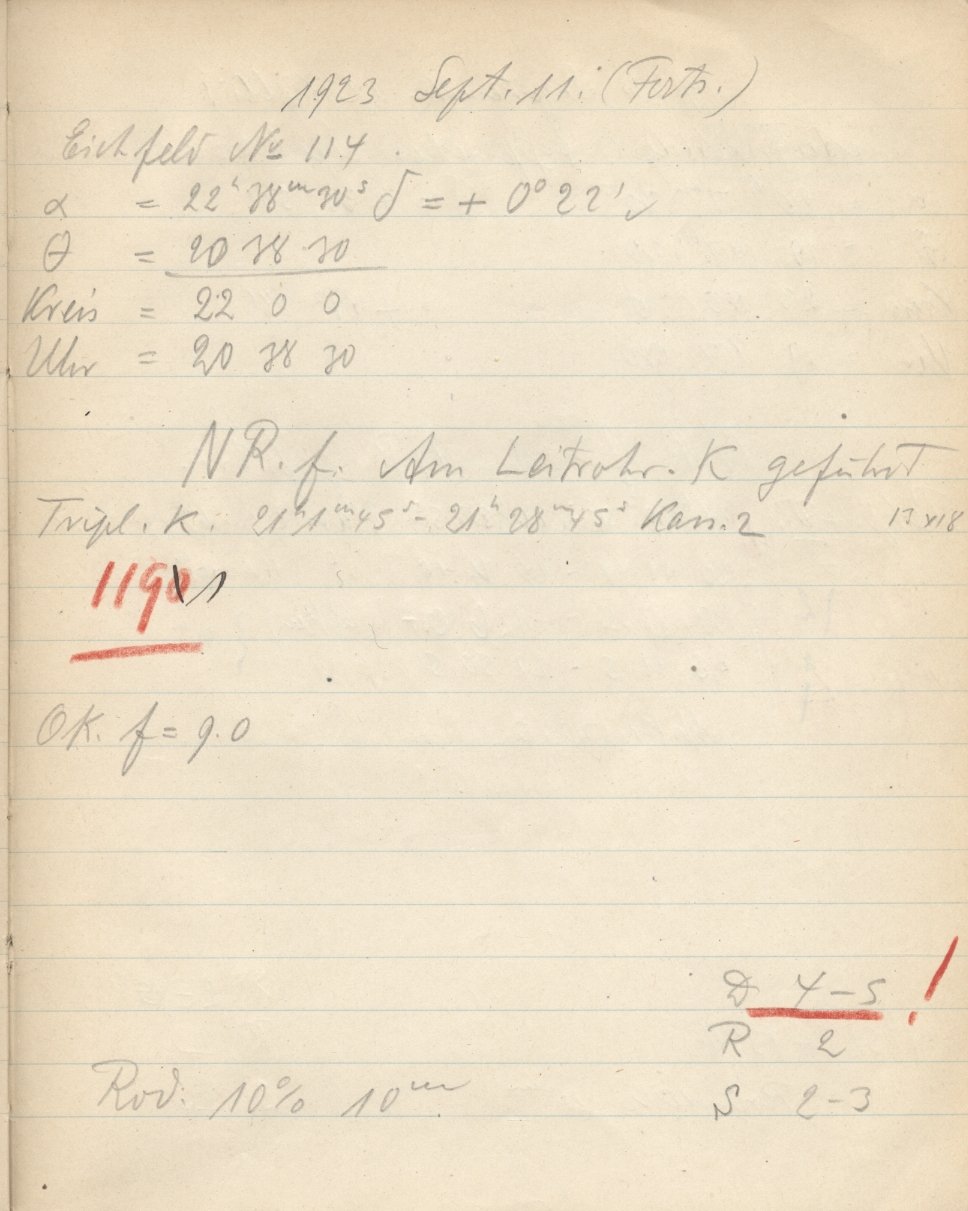 1923 Sept. 11. (Forts.)
Eichfeld No 114.
α = 22ʰ 38ᵐ 30ˢ δ = + 0° 22'
θ = 20 38 30
Kreis = 22 0 0
Uhr = 20 38 30
NR. f. Am Leitrohr. K geführt
Tripl. K. 21ʰ 1ᵐ 45ˢ - 21ʰ 28ᵐ 45ˢ Kass. 2 13x18
1190 1
OK. f = 9.0
D 4-5 !
R 2
Rod: 10% 10ᵐ
S 2-3